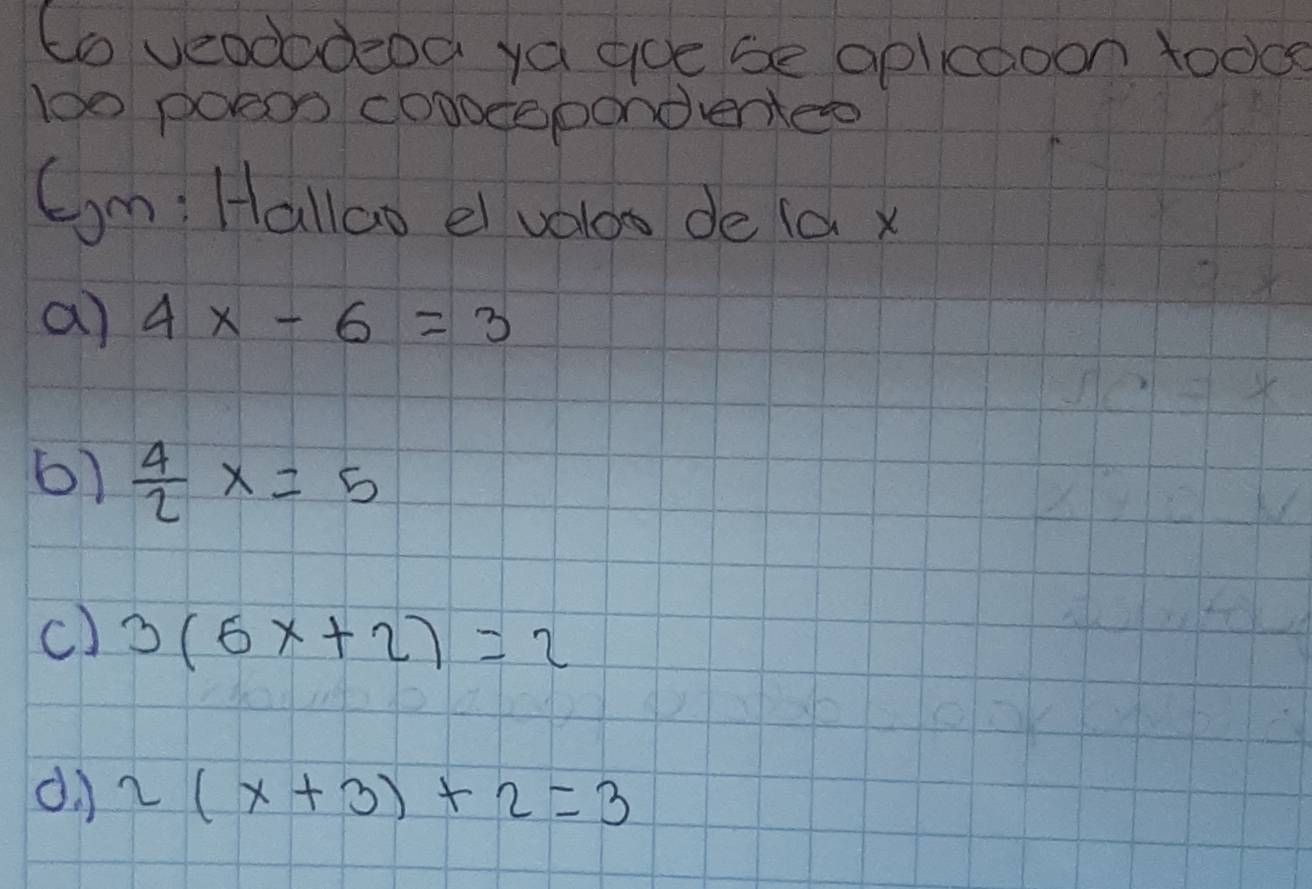 Es verdadera ya que se aplicaron todos
los pasos correspondientes
Ejm: Hallar el valor de la x
a) 4x - 6 = 3
b) 4/2 x = 5
c) 3(6x+2) = 2
d.) 2(x+3) + 2 = 3